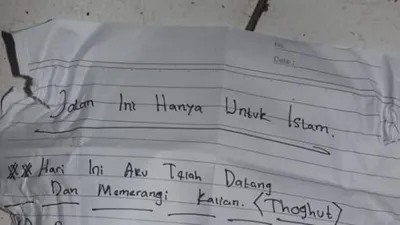 No.
Date:
Jalan Ini Hanya Untuk Islam.
** Hari Ini Aku Telah Datang
Dan Memerangi Kalian. (Thoghut)